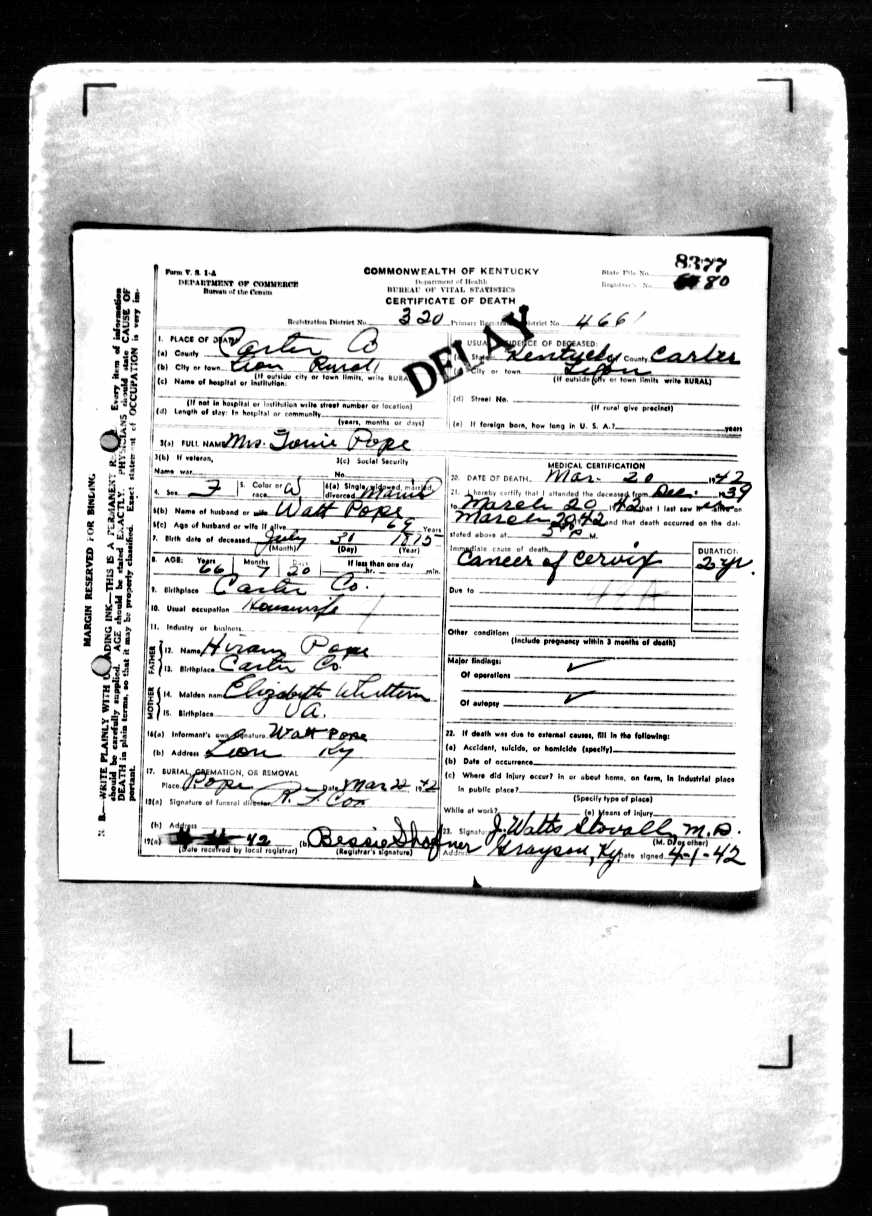 Form V. S. 1-A
DEPARTMENT OF COMMERCE
Bureau of the Census
COMMONWEALTH OF KENTUCKY
Department of Health
BUREAU OF VITAL STATISTICS
CERTIFICATE OF DEATH
State File No. 8377
Registrar's No. 80
Registration District No. 320 Primary Registration District No. 4661
DELAY
1. PLACE OF DEATH
(a) County Carter Co
(b) City or town Leon Rural
(If outside city or town limits, write RURAL)
(c) Name of hospital or institution:
(If not in hospital or institution write street number or location)
(d) Length of stay: In hospital or community
(years, months or days)
2. USUAL RESIDENCE OF DECEASED:
(a) State Kentucky County Carter
City or town Leon
(If outside city or town limits write RURAL)
(d) Street No.
(If rural give precinct)
(e) If foreign born, how long in U. S. A.? years
3(a) FULL NAME Mrs. Pope
3(b) If veteran, 3(c) Social Security
Name war No.
4. Sex F 5. Color or race W 6(a) Single, widowed, married, divorced Married
6(b) Name of husband or wife Watt Pope
6(c) Age of husband or wife if alive 69 Years
7. Birth date of deceased July 31 1875
(Month) (Day) (Year)
8. AGE: Years Months Days If less than one day
66 7 20 hr. min.
9. Birthplace Carter Co.
10. Usual occupation Housewife
11. Industry or business
FATHER
12. Name Hiram Pope
13. Birthplace Carter Co.
MOTHER
14. Maiden name Elizabeth
15. Birthplace VA.
16(a) Informant's own signature Watt Pope
(b) Address Leon Ky
17. BURIAL, CREMATION, OR REMOVAL
Place Pope Date Mar 22 1942
18(a) Signature of funeral director R. F. Cox
(b) Address
19(a) 42 (b) Bessie Shafner
(Date received by local registrar) (Registrar's signature)
MEDICAL CERTIFICATION
20. DATE OF DEATH Mar. 20 1942
21. I hereby certify that I attended the deceased from Dec. 1939
to March 20 1942 that I last saw alive on
March 20 1942 and that death occurred on the date
stated above at 5 P. M.
Immediate cause of death DURATION
Cancer of Cervix 2 yr.
Due to
Other conditions
(Include pregnancy within 3 months of death)
Major findings:
Of operations ✓
Of autopsy ✓
22. If death was due to external causes, fill in the following:
(a) Accident, suicide, or homicide (specify)
(b) Date of occurrence
(c) Where did injury occur? In or about home, on farm, in industrial place
in public place?
(Specify type of place)
While at work? (e) Means of injury
23. Signature J. Watts Stovall, M.D.
(M. D. or other)
Address Grayson, Ky. Date signed 4-1-42
MARGIN RESERVED FOR BINDING.
N. B.—WRITE PLAINLY WITH UNFADING INK—THIS IS A PERMANENT R. Every item of information
should be carefully supplied. AGE should be stated EXACTLY. PHYSICIANS should state CAUSE OF
DEATH in plain terms, so that it may be properly classified. Exact statement of OCCUPATION is very im-
portant.